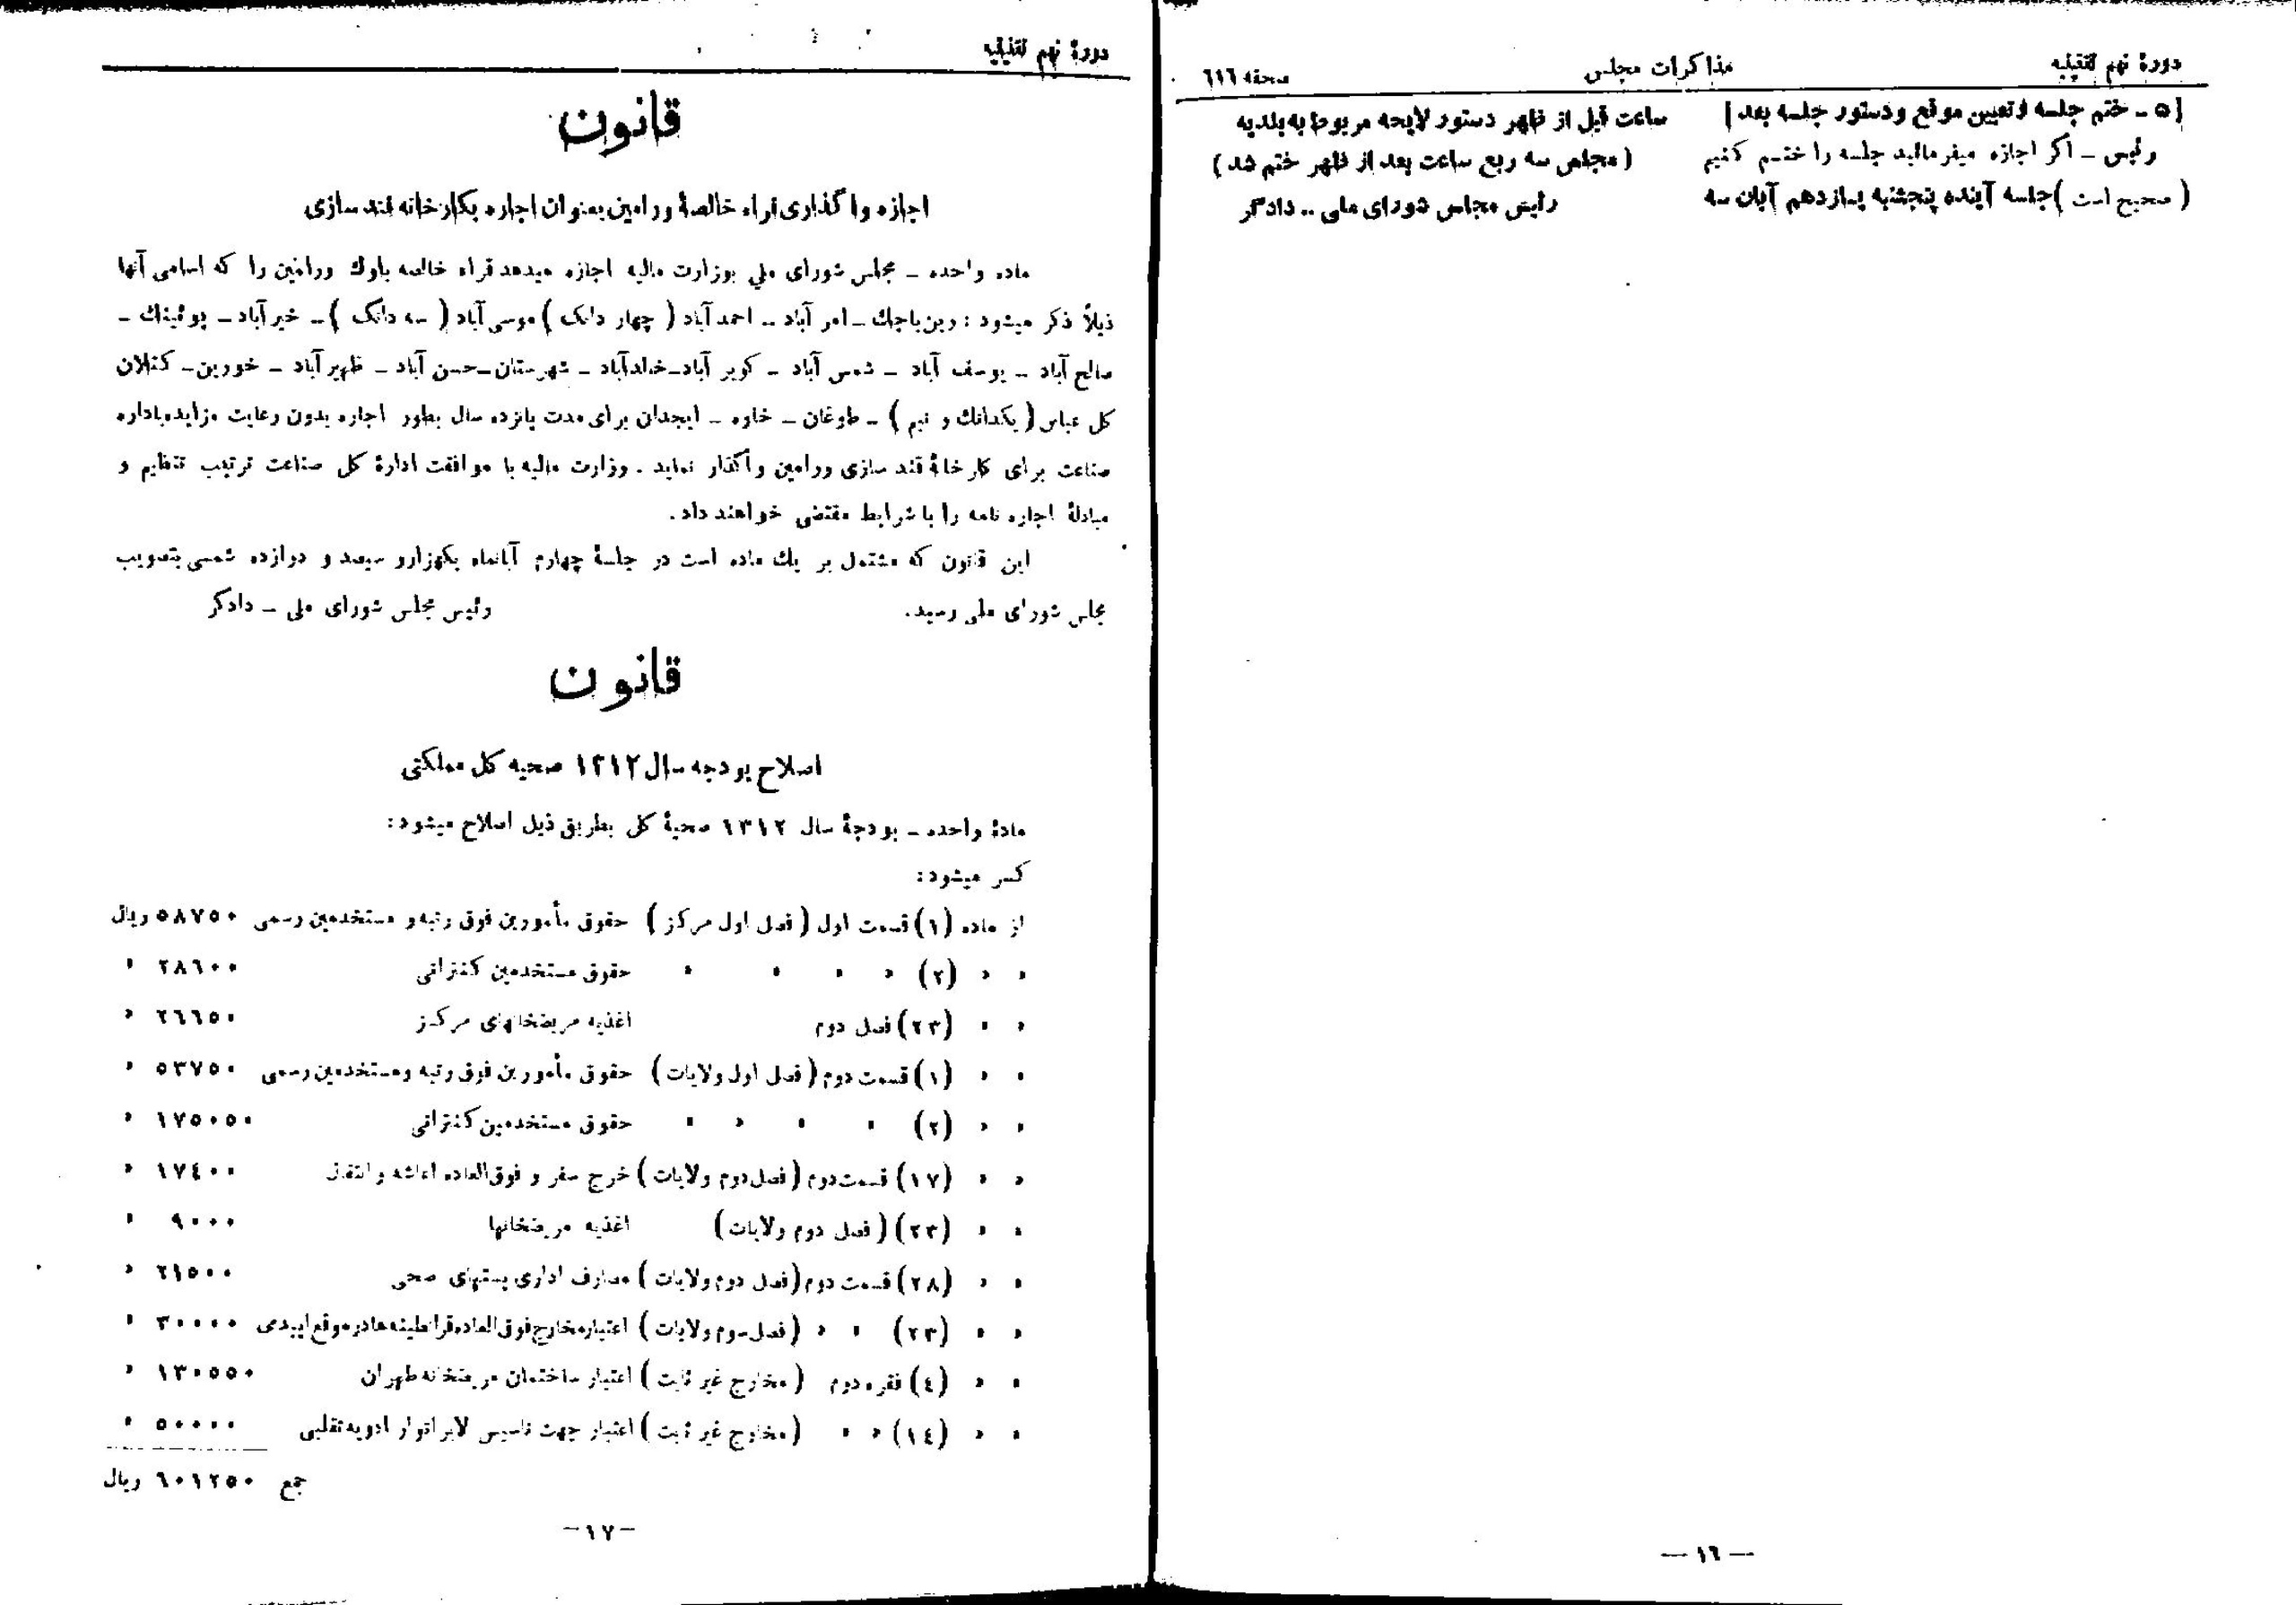 دورهٔ نهم تقنینیه
مذاکرات مجلس
صحفه ٦١٦
[ ٥ ـ ختم جلسه و تعیین موقع و دستور جلسه بعد ]
رئیس ـ اگر اجازه میفرمائید جلسه را ختم کنیم
( صحیح است ) جلسه آینده پنجشنبه یازدهم آبان سه
ساعت قبل از ظهر دستور لایحه مربوط به بلدیه
( مجلس سه ربع ساعت بعد از ظهر ختم شد )
رئیس مجلس شورای ملی ـ دادگر
— ١٦ —
دورهٔ نهم تقنینیه
قانون
اجازه واگذاری قراء خالصهٔ ورامین بعنوان اجاره بکارخانه قند سازی
ماده واحده ـ مجلس شورای ملي بوزارت مالیه اجازه میدهد قراء خالصه بلوك ورامین را که اسامی آنها
ذیلاً ذکر میشود : رین باجك ـ امر آباد ـ احمد آباد ( چهار دانك ) موسی آباد ( سه دانگ ) ـ خیر آباد ـ پوئینك ـ
صالح آباد ـ یوسف آباد ـ شمس آباد ـ کویر آباد ـ خالدآباد ـ شهرستان ـ حسن آباد ـ ظهیر آباد ـ خورین ـ کنلان
کل عباس ( یکدانك و نیم ) ـ طوغان ـ خاوه ـ ایجدان برای مدت پانزده سال بطور اجاره بدون رعایت مزایده باداره
صناعت برای کارخانهٔ قند سازی ورامین واگذار نماید . وزارت مالیه با موافقت ادارهٔ کل صناعت ترتیب تنظیم و
مبادلهٔ اجاره نامه را با شرایط مقتضی خواهند داد .
این قانون که مشتمل بر یك ماده است در جلسهٔ چهارم آبانماه یکهزار و سیصد و دوازده شمسی بتصویب
مجلس شورای ملی رسید . رئیس مجلس شورای ملی ـ دادگر
قانون
اصلاح بودجه سال ١٣١٢ صحیه کل مملکتی
مادهٔ واحده ـ بودجهٔ سال ١٣١٢ صحیهٔ کل بطریق ذیل اصلاح میشود :
کسر میشود :
از ماده (١) قسمت اول ( فصل اول مرکز ) حقوق مأمورین فوق رتبه و مستخدمین رسمی ٥٨٧٥٠ ریال
» » (٢) » » » » حقوق مستخدمین کنتراتی ٢٨٦٠٠ »
» » (٢٣) فصل دوم اغذیه مریضخانهای مرکز ٢٦٦٥٠ »
» » (١) قسمت دوم ( فصل اول ولایات ) حقوق مأمورین فوق رتبه و مستخدمین رسمی ٥٣٧٥٠ »
» » (٢) » » » » حقوق مستخدمین کنتراتی ١٧٥٠٥٠ »
» » (١٧) قسمت دوم ( فصل دوم ولایات ) خرج سفر و فوق العاده اعاشه و انتقال ١٧٤٠٠ »
» » (٢٣) ( فصل دوم ولایات ) اغذیه مریضخانها ٩٠٠٠ »
» » (٢٨) قسمت دوم ( فصل دوم ولایات ) مصارف اداری پستهای صحی ٢١٥٠٠ »
» » (٢٣) » » ( فصل سوم ولایات ) اعتبار مخارج فوق العاده قرانطینه ها در موقع اپیدمی ٣٠٠٠٠ »
» » (٤) فقره دوم ( مخارج غیر ثابت ) اعتبار ساختمان مریضخانه طهران ١٣٠٥٥٠ »
» » (١٤) » » ( مخارج غیر ثابت ) اعتبار جهت تاسیس لابراتوار ادویه تقلبی ٥٠٠٠٠ »
جمع ٦٠١٢٥٠ ریال
—١٧—